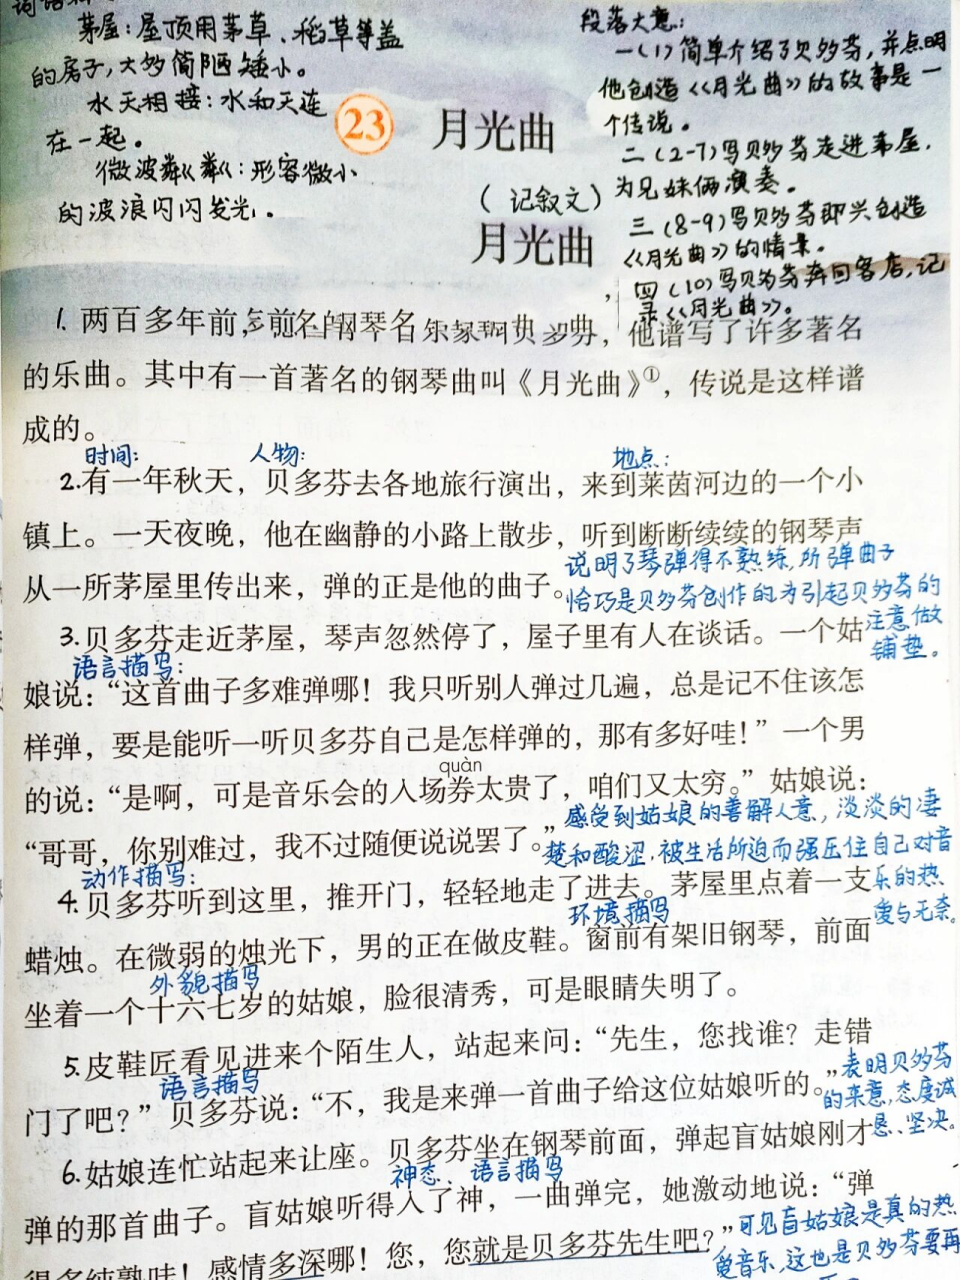 茅屋:屋顶用茅草、稻草等盖
的房子,大多简陋矮小。
水天相接:水和天连
在一起。
微波粼粼:形容微小
的波浪闪闪发光。
段落大意:
一(1)简单介绍了贝多芬,并点明
他创造《月光曲》的故事是一
个传说。
二(2-7)写贝多芬走进茅屋,
为兄妹俩演奏。
三(8-9)写贝多芬即兴创造
《月光曲》的情景。
四(10)写贝多芬奔回客店,记
录《月光曲》。
23
月光曲
(记叙文)
月光曲
1. 两百多年前,
,他谱写了许多著名
的乐曲。其中有一首著名的钢琴曲叫《月光曲》①,传说是这样谱
成的。
时间: 人物: 地点:
2.有一年秋天,贝多芬去各地旅行演出,来到莱茵河边的一个小
镇上。一天夜晚,他在幽静的小路上散步,听到断断续续的钢琴声
从一所茅屋里传出来,弹的正是他的曲子。
说明了琴弹得不熟练,所弹曲子
恰巧是贝多芬创作的,为引起贝多芬的
注意做
铺垫。
3.贝多芬走近茅屋,琴声忽然停了,屋子里有人在谈话。一个姑
语言描写:
娘说:“这首曲子多难弹哪!我只听别人弹过几遍,总是记不住该怎
样弹,要是能听一听贝多芬自己是怎样弹的,那有多好哇!”一个男
quàn
的说:“是啊,可是音乐会的入场券太贵了,咱们又太穷。”姑娘说:
“哥哥,你别难过,我不过随便说说罢了。”
感受到姑娘的善解人意,淡淡的凄
楚和酸涩,被生活所迫而强压住自己对音
乐的热
爱与无奈。
动作描写:
4.贝多芬听到这里,推开门,轻轻地走了进去。茅屋里点着一支
环境描写
蜡烛。在微弱的烛光下,男的正在做皮鞋。窗前有架旧钢琴,前面
外貌描写
坐着一个十六七岁的姑娘,脸很清秀,可是眼睛失明了。
5.皮鞋匠看见进来个陌生人,站起来问:“先生,您找谁?走错
语言描写
门了吧?”贝多芬说:“不,我是来弹一首曲子给这位姑娘听的。”
表明贝多芬
的来意,态度诚
恳、坚决。
6.姑娘连忙站起来让座。贝多芬坐在钢琴前面,弹起盲姑娘刚才
神态、语言描写
弹的那首曲子。盲姑娘听得入了神,一曲弹完,她激动地说:“弹
得多纯熟哇!感情多深哪!您,您就是贝多芬先生吧?”
可见盲姑娘是真的热
爱音乐,这也是贝多芬要再